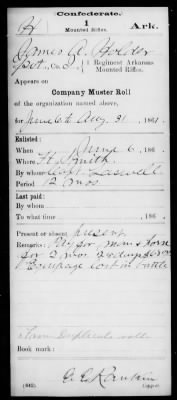 Confederate.
H 1 Ark.
Mounted Rifles.
James A. Holder
Pvt, Co. 1 Regiment Arkansas
Mounted Rifles.
Appears on
Company Muster Roll
of the organization named above,
for June 6 to Aug 31, 1861.
Enlisted:
When June 6, 186
Where Ft. Smith
By whom Capt.
Period 12 mos
Last paid:
By whom
To what time , 186
Present or absent present
Remarks: Pay for man & horse
for 2 mos 2 days
Equipage lost in battle
From duplicate roll
Book mark:
(642) G. E. Rankin
Copyist.